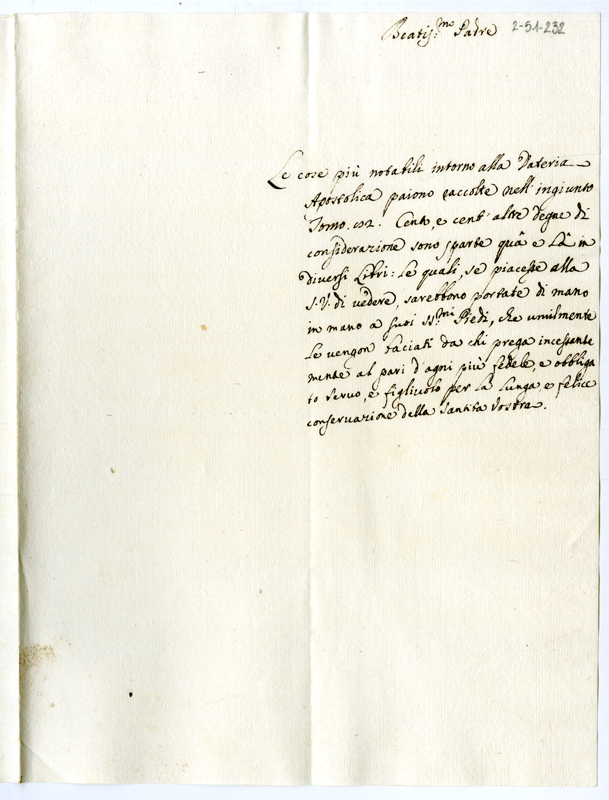 Beatis.mo Padre 2-51-232
Le cose più notabili intorno alla Dateria
Apostolica paiono raccolte nell'ingiunto
Tomo. Cento, e cent' altre degne di
considerazione sono sparte quà e là in
diversi Libri: le quali, se piacesse alla
S.V. di vedere, sarebbono portate di mano
in mano a suoi SS.mi Piedi, che umilmente
le vengon baciati da chi prega incessante
mente al pari d'ogni più fedele, e obbliga
to servo, e figliuolo per la lunga e felice
conservazione della Santità Vostra.